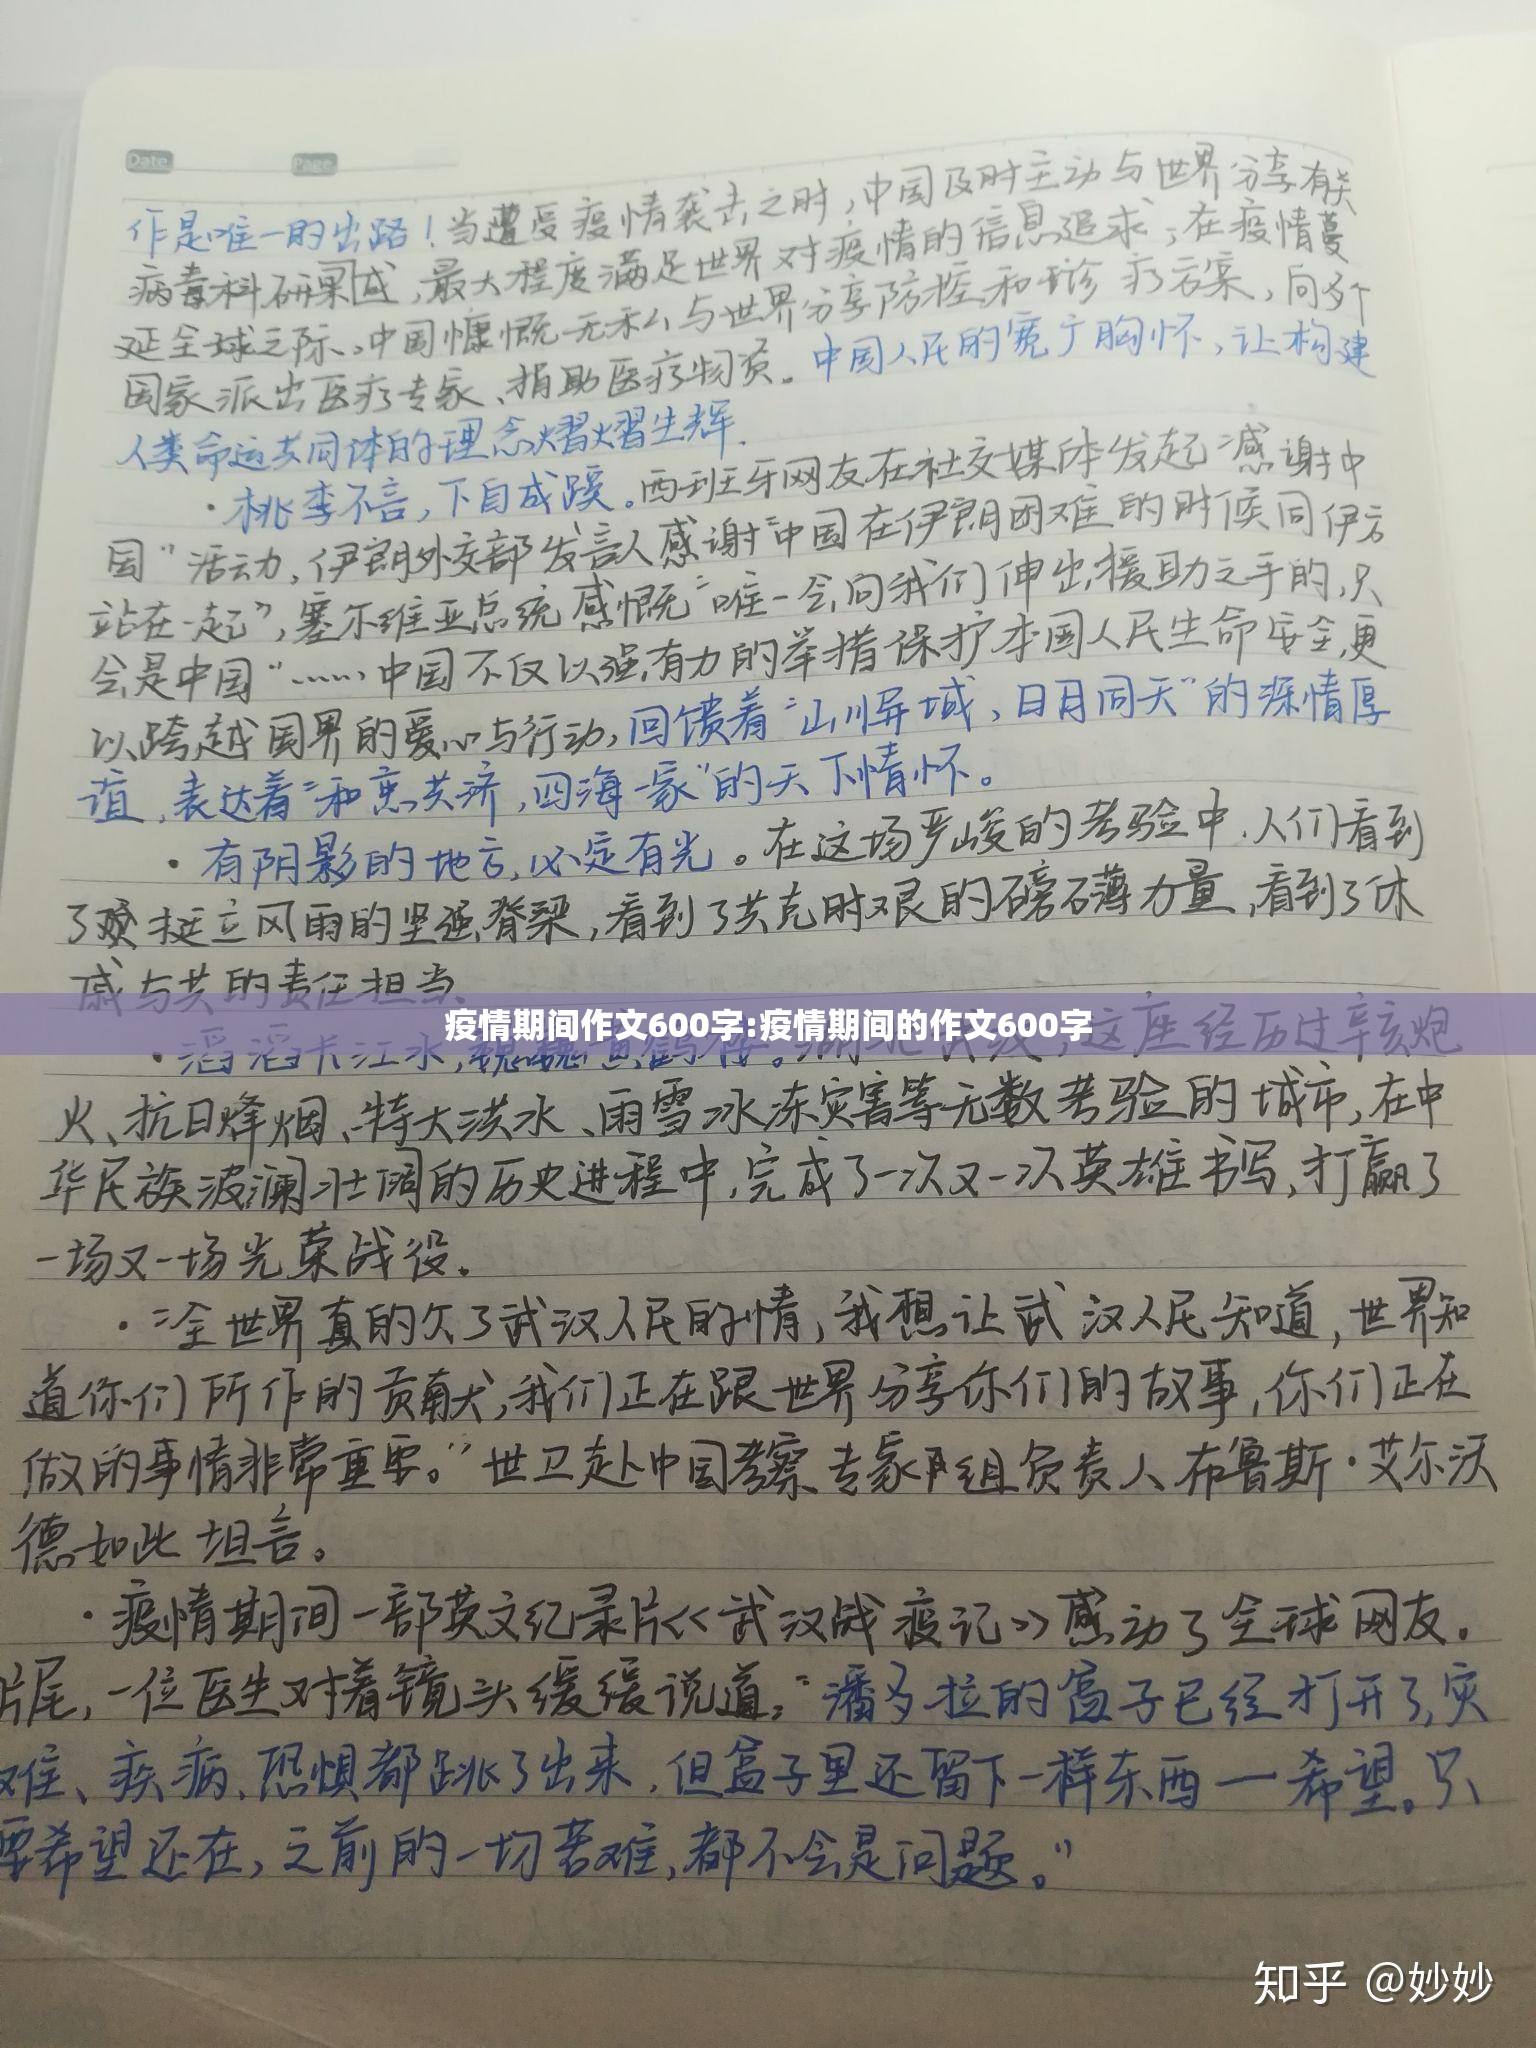 Date.
Page.
作是唯一的出路！当遭受疫情袭击之时，中国及时主动与世界分享有关
病毒科研果成，最大程度满足世界对疫情的信息追求；在疫情蔓
延全球之际，中国慷慨无私与世界分享防控和诊疗方案，向多个
国家派出医疗专家、捐助医疗物资。中国人民的宽广胸怀，让构建
人类命运共同体的理念熠熠生辉.
·桃李不言，下自成蹊。西班牙网友在社交媒体发起"感谢中
国"活动，伊朗外交部发言人感谢"中国在伊朗困难的时候同伊方
站在一起"，塞尔维亚总统感慨"唯一会向我们伸出援助之手的，只
会是中国"……中国不仅以强有力的举措保护本国人民生命安全，更
以跨越国界的爱心与行动，回馈着"山川异域，日月同天"的深情厚
谊，表达着"和衷共济，四海一家"的天下情怀。
·有阴影的地方，必定有光。在这场严峻的考验中，人们看到
了挺立风雨的坚强脊梁，看到了共克时艰的磅礴力量，看到了休
戚与共的责任担当.
疫情期间作文600字:疫情期间的作文600字
·滔滔长江水，巍巍黄鹤楼。湖北武汉，这座经历过辛亥炮
火、抗日烽烟、特大洪水、雨雪冰冻灾害等无数考验的城市，在中
华民族波澜壮阔的历史进程中，完成了一次又一次英雄书写，打赢了
一场又一场光荣战役。
·"全世界真的欠了武汉人民的情，我想让武汉人民知道，世界知
道你们所作的贡献，我们正在跟世界分享你们的故事，你们正在
做的事情非常重要。"世卫赴中国考察专家组负责人布鲁斯·艾尔沃
德如此坦言。
·疫情期间一部英文纪录片《武汉战疫记》感动了全球网友。
片尾，一位医生对着镜头缓缓说道："潘多拉的盒子已经打开了，灾
难、疾病、恐惧都跳了出来，但盒子里还留下一样东西—希望。只
要希望还在，之前的一切苦难，都不会是问题。"
知乎 @妙妙